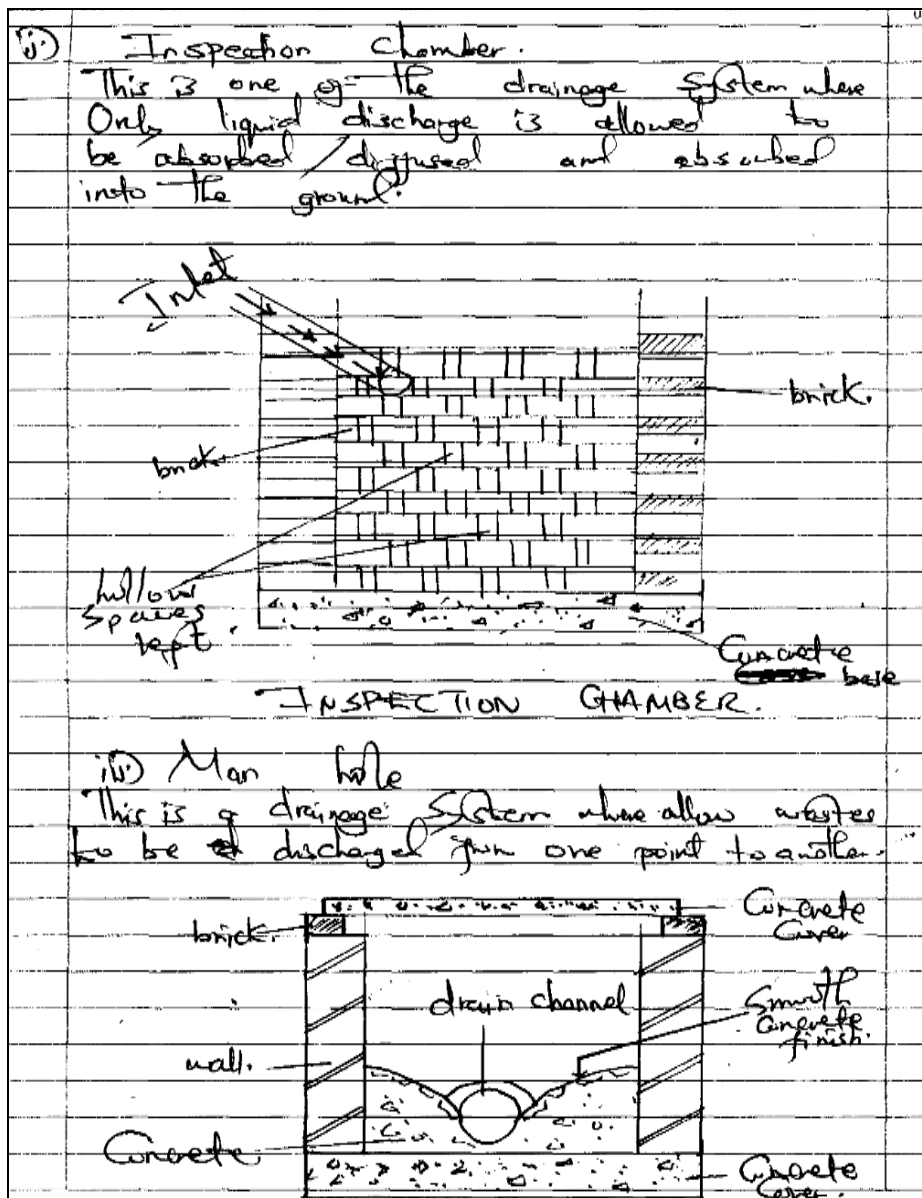 ii) Inspection Chamber.
This is one of the drainage System where
Only liquid discharge is allowed to
be absorbed / diffused and absorbed
into the ground.
Inlet
brick.
brick.
hollow
spaces
kept.
Concrete
base
INSPECTION CHAMBER.
iii) Man hole
This is a drainage System where allow wastes
to be discharged from one point to another.
Concrete
Cover
brick.
drain channel
Smooth
Concrete
finish.
wall.
Concrete
Concrete
Cover